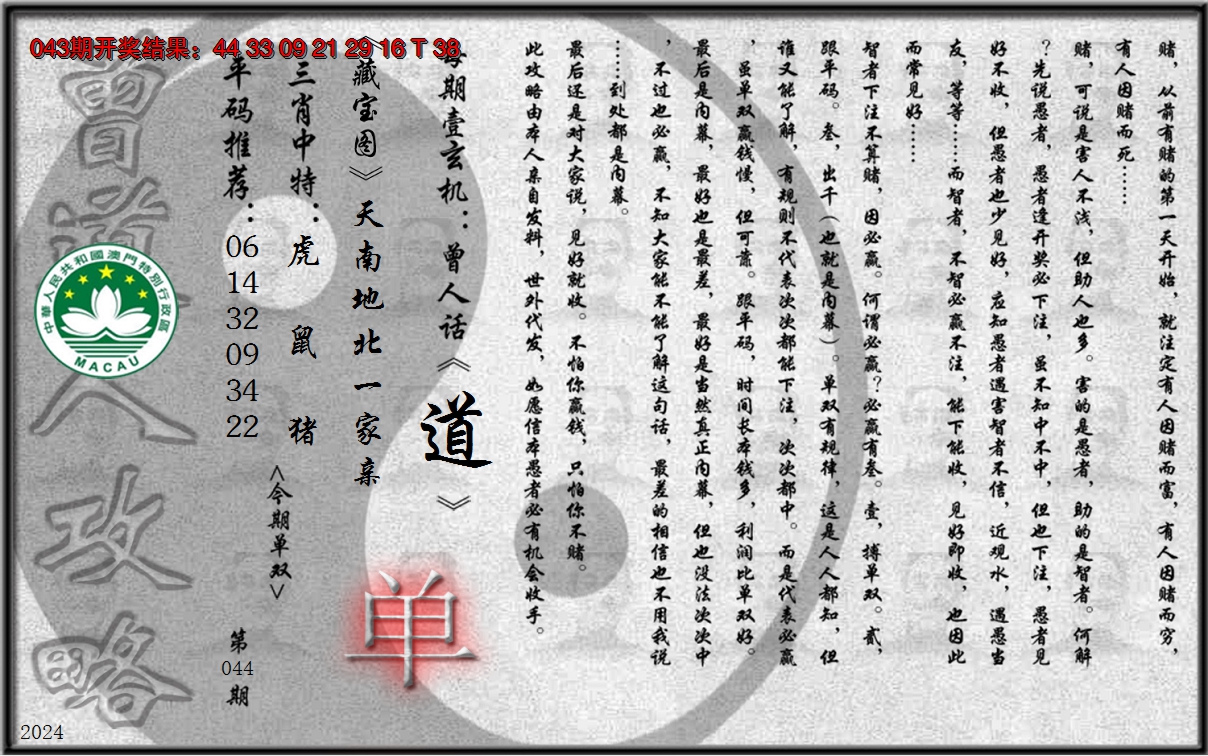 043期开奖结果：44 33 09 21 29 16 T 38
赌，从前有赌的第一天开始，就注定有人因赌而富，有人因赌而穷，
有人因赌而死……
赌，可说是害人不浅，但助人也多。害的是愚者，助的是智者。何解
？先说愚者，愚者逢开奖必下注，虽不知中不中，但也下注，愚者见
好不收，但愚者也少见好，应知愚者遇害智者不信，近观水，遇愚当
友，等等……而智者，不智必赢不注，能下能收，见好即收，也因此
而常见好……
智者下注不算赌，因必赢。何谓必赢？必赢有叁。壹，搏单双。贰，
跟平码。叁，出千（也就是内幕）。单双有规律，这是人人都知，但
谁又能了解，有规则不代表次次都能下注，次次都中。而是代表必赢
，虽单双赢钱慢，但可靠。跟平码，时间长本钱多，利润比单双好。
最后是内幕，最好也是最差，最好是当然真正内幕，但也没法次次中
，不过也必赢，不知大家能不能了解这句话，最差的相信也不用我说
……到处都是内幕。
最后还是对大家说，见好就收。不怕你赢钱，只怕你不赌。
此攻略由本人亲自发料，世外代发，如愿信本愚者必有机会收手。
每期壹玄机：曾人话《道》
《藏宝图》天南地北一家亲
单
三肖中特：虎 鼠 猪
<今期单双>
平码推荐：06 14 32 09 34 22
第044期
曾道人攻略
中華人民共和國澳門特別行政區
MACAU
2024